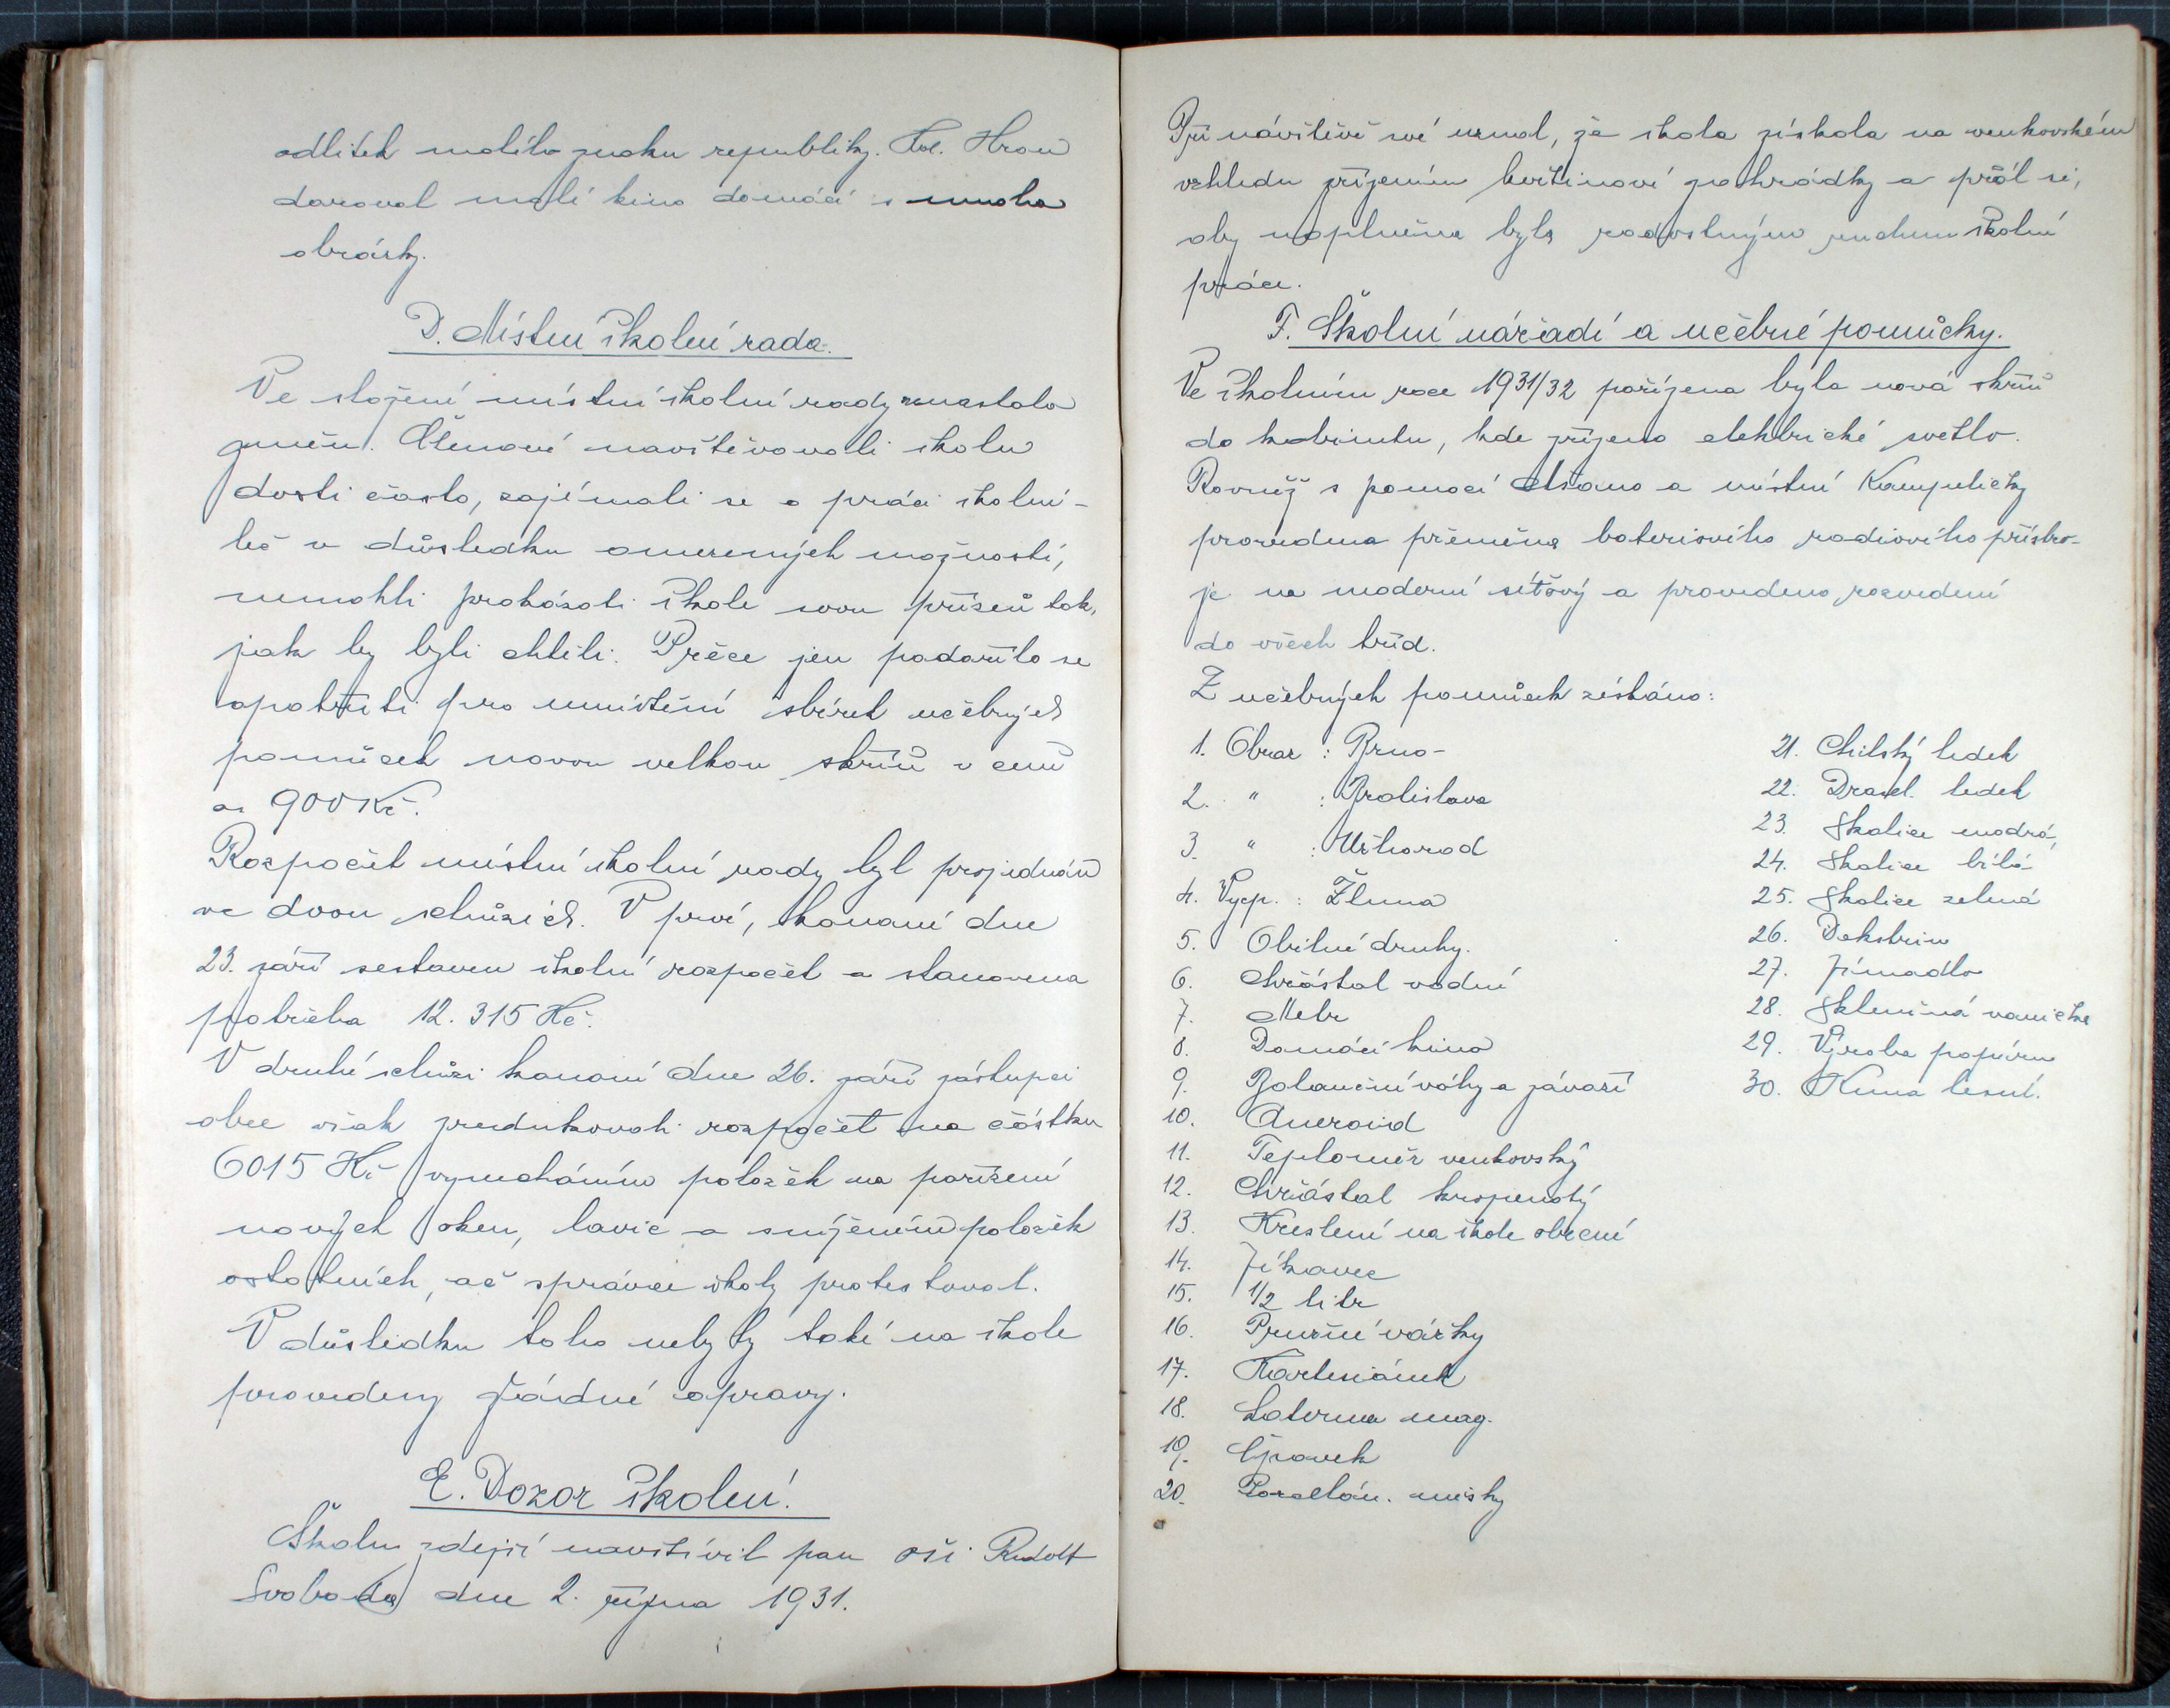 odlitek malého znaku republiky. Kol. Hron
daroval malé kino domácí s mnoha
obrázky.
D. Místní školní rada.
Ve složení místní školní rady nenastalo
změn. Členové navštěvovali školu
dosti často, zajímali se o práci školní -
leč v důsledku omezených možností,
nemohli prokázati škole svou přízeň tak,
jak by byli chtěli. Přece jen podařilo se
opatřiti pro umístění sbírek učebných
pomůcek novou velkou skříň v ceně
as 900 Kč.
Rozpočet místní školní rady byl projednán
ve dvou schůzích. V prvé, konané dne
23. září sestaven školní rozpočet a stanovena
potřeba 12.315 Kč.
V druhé schůzi konané dne 26. září zástupci
obce však zredukovali rozpočet na částku
6015 Kč vynecháním položek na pořízení
nových oken, lavic a snížením položek
ostatních, ač správce školy protestoval.
V důsledku toho nebyly také na škole
provedeny žádné opravy.
E. Dozor školní.
Školu zdejší navštívil pan oši Rudolf
Svoboda dne 2. října 1931.
Při návštěvě své uznal, že škola získala na venkovském
vzhledu zřízením květinové zahrádky a přál si,
aby naplněna byla radostným ruchem školní
práce.
F. Školní nářadí a učebné pomůcky.
Ve školním roce 1931/32 pořízena byla nová skříň
do kabinetu, kde zřízeno elektrické světlo.
Rovněž s pomocí Msano a místní Kampeličky
provedena přeměna bateriového radiového přístro-
je na moderní síťový a provedeno rozvedení
do všech tříd.
Z učebných pomůcek získáno:
1. Obraz : Brno -
2. " : Bratislava
3. " : Užhorod
4. Vycp. : Žluna
5. Obilné druhy.
6. Chřástal vodní
7. Metr
8. Domácí kino
9. Balanční váhy a závaží
10. Aneroid
11. Teploměr venkovský
12. Chřástal kropenatý
13. Kreslení na škole obecné
14. Jíkavec
15. 1/2 litr
16. Pružné vážky
17. Kartesiánek
18. Laterna mag.
19. Čpavek
20. Porcelán. misky
21. Chilský ledek
22. Drasel. ledek
23. Skalice modrá,
24. Skalice bílá
25. Skalice zelená
26. Dekstrin
27. Jímadlo
28. Skleněná vanička
29. Výroba papíru
30. Kuna lesní.